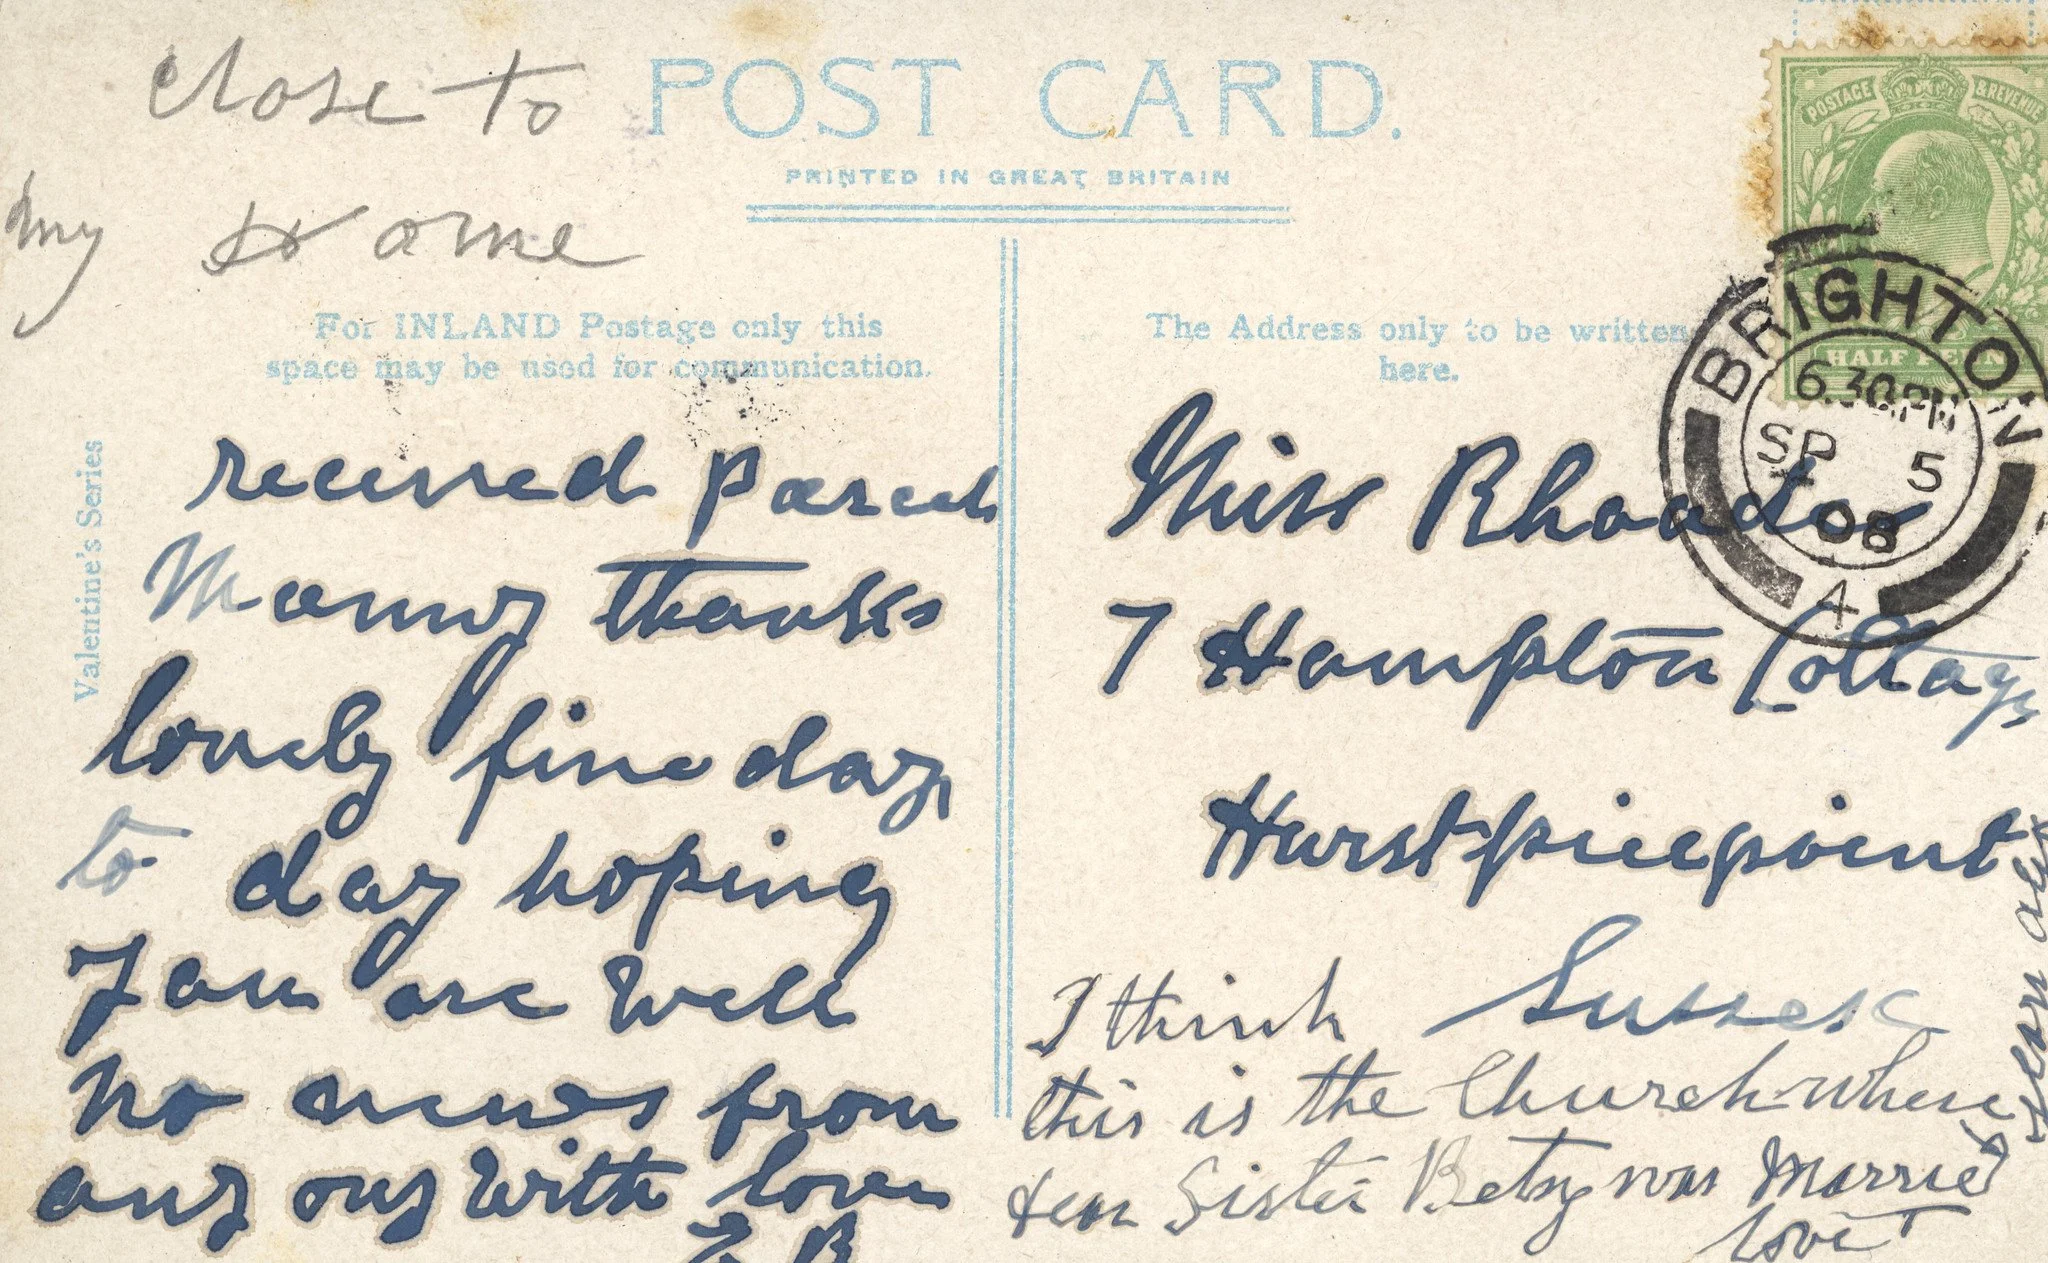 close to
my Home
POST CARD.
PRINTED IN GREAT BRITAIN
POSTAGE & REVENUE
HALFPENNY
BRIGHTON
6.30 PM
SP 5
08
A
Valentine's Series
For INLAND Postage only this
space may be used for communication.
received Parcel
Many thanks
lovely fine day
to day hoping
you are well
no news from
any one with love
B
The Address only to be written
here.
Miss Rhoades
7 Hampton Cottages
Hurstpierpoint
Sussex
I think
this is the Church where
dear Sister Betsy was Married
love